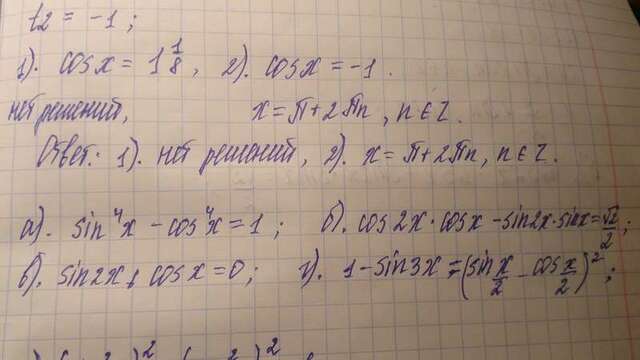 t2 = -1 ;
1). cosx = 1 1/8 , 2). cosx = -1 .
нет решений, x = π + 2πn , n ∈ Z .
Ответ: 1). нет решений, 2). x = π + 2πn, n ∈ Z .
а). sin⁴x - cos⁴x = 1 ; б). cos2x · cosx - sin2x · sinx = √2/2 ;
б). sin2x + cosx = 0 ; г). 1 - sin3x = (sin x/2 - cos x/2)² ;